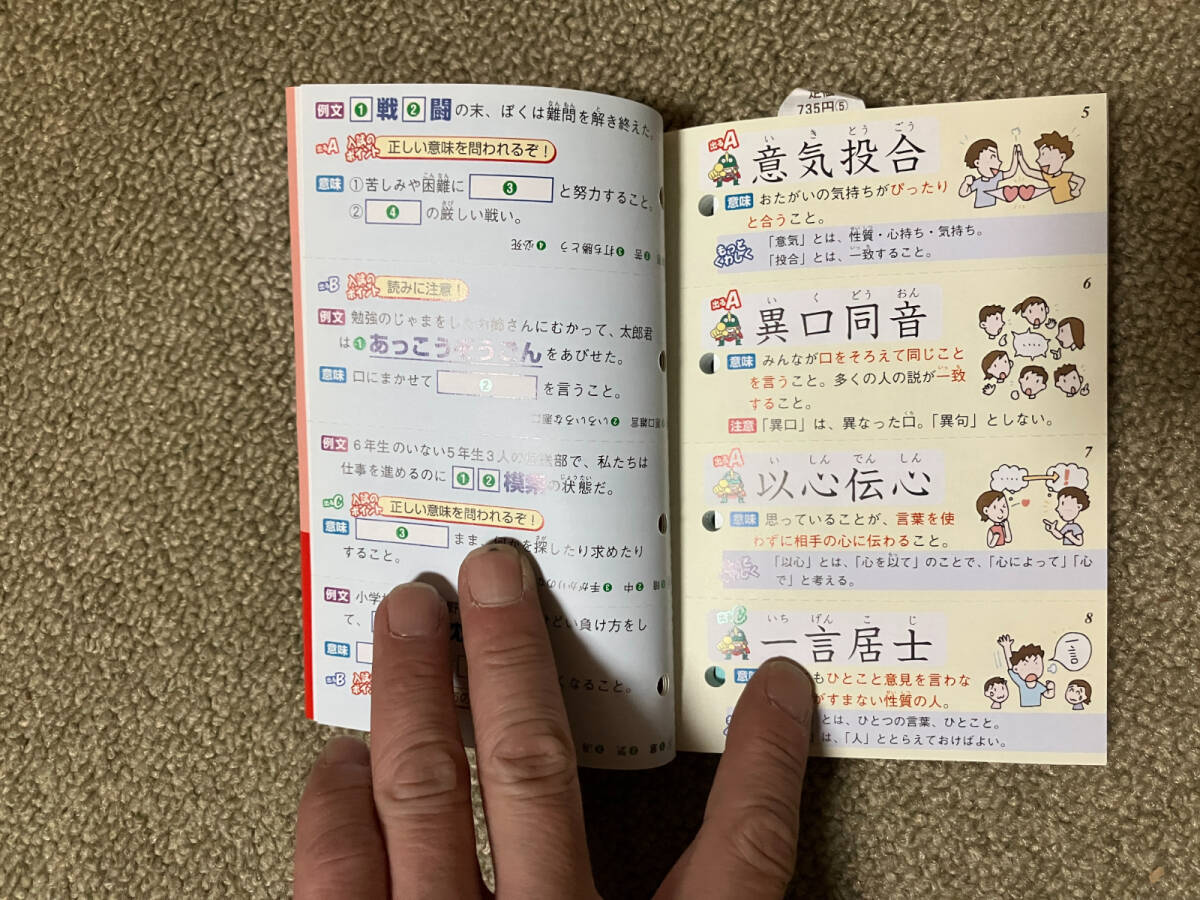 例文 ❶戦❷闘の末、ぼくは難問を解き終えた。
なんもん と
出るA 入試のポイント 正しい意味を問われるぞ!
意味 ①苦しみや困難に ❸ と努力すること。
こんなん
② ❹ の厳しい戦い。
きび
❷苦 ❸打ち勝とう ❹必死
出るB 入試のポイント 読みに注意!
例文 勉強のじゃまをした
さんにむかって、太郎君
は❶あっこうぞうごんをあびせた。
意味 口にまかせて ❷ を言うこと。
悪口雑言 ❷いろいろな悪口
例文 6年生のいない5年生3人の
部で、私たちは
仕事を進めるのに ❶ ❷ 模索の状態だ。
じょうたい
出るC 入試のポイント 正しい意味を問われるぞ!
意味 ❸ まま、何かを探したり求めたり
さが
すること。
❷中 ❸手がかりの
例文 小学校
どい負け方をし
て、
意味
くなること。
出るB 入試のポイント
定価
735円⑤
5
出るA
い き とう ごう
意気投合
意味 おたがいの気持ちがぴったり
と合うこと。
もっとくわしく 「意気」とは、性質・心持ち・気持ち。
せいしつ
「投合」とは、一致すること。
いっち
6
出るA
い く どう おん
異口同音
意味 みんなが口をそろえて同じこと
を言うこと。多くの人の説が一致
いっち
すること。
注意 「異口」は、異なった口。「異句」としない。
くち
7
出るA
い しん でん しん
以心伝心
意味 思っていることが、言葉を使
わずに相手の心に伝わること。
もっとくわしく 「以心」とは、「心を以て」のことで、「心によって」「心
もっ
で」と考える。
8
出るC
いち げん こ じ
一言居士
一言
意味
もひとこと意見を言わな
がすまない性質の人。
せいしつ
とは、ひとつの言葉、ひとこと。
は、「人」ととらえておけばよい。